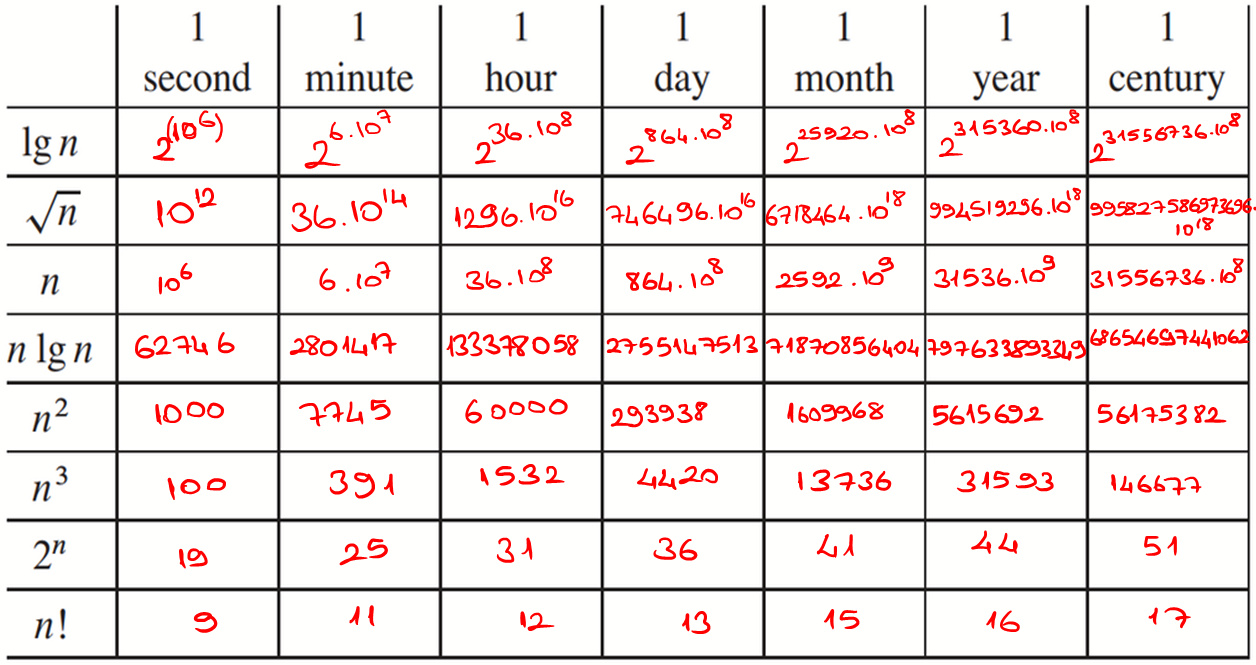 1 1 1 1 1 1 1
second minute hour day month year century
lg n 2^(10^6) 2^6.10^7 2^36.10^8 2^864.10^8 2^25920.10^8 2^315360.10^8 2^31556736.10^8
√n 10^12 36.10^14 1296.10^16 746496.10^16 6718464.10^18 994519296.10^18 995827586973696.
10^18
n 10^6 6.10^7 36.10^8 864.10^8 2592.10^9 31536.10^9 31556736.10^8
n lg n 62746 2801417 133378058 2755147513 71870856404 797633893349 68654697441062
n² 1000 7745 60000 293938 1609968 5615692 56175382
n³ 100 391 1532 4420 13736 31593 146677
2ⁿ 19 25 31 36 41 44 51
n! 9 11 12 13 15 16 17